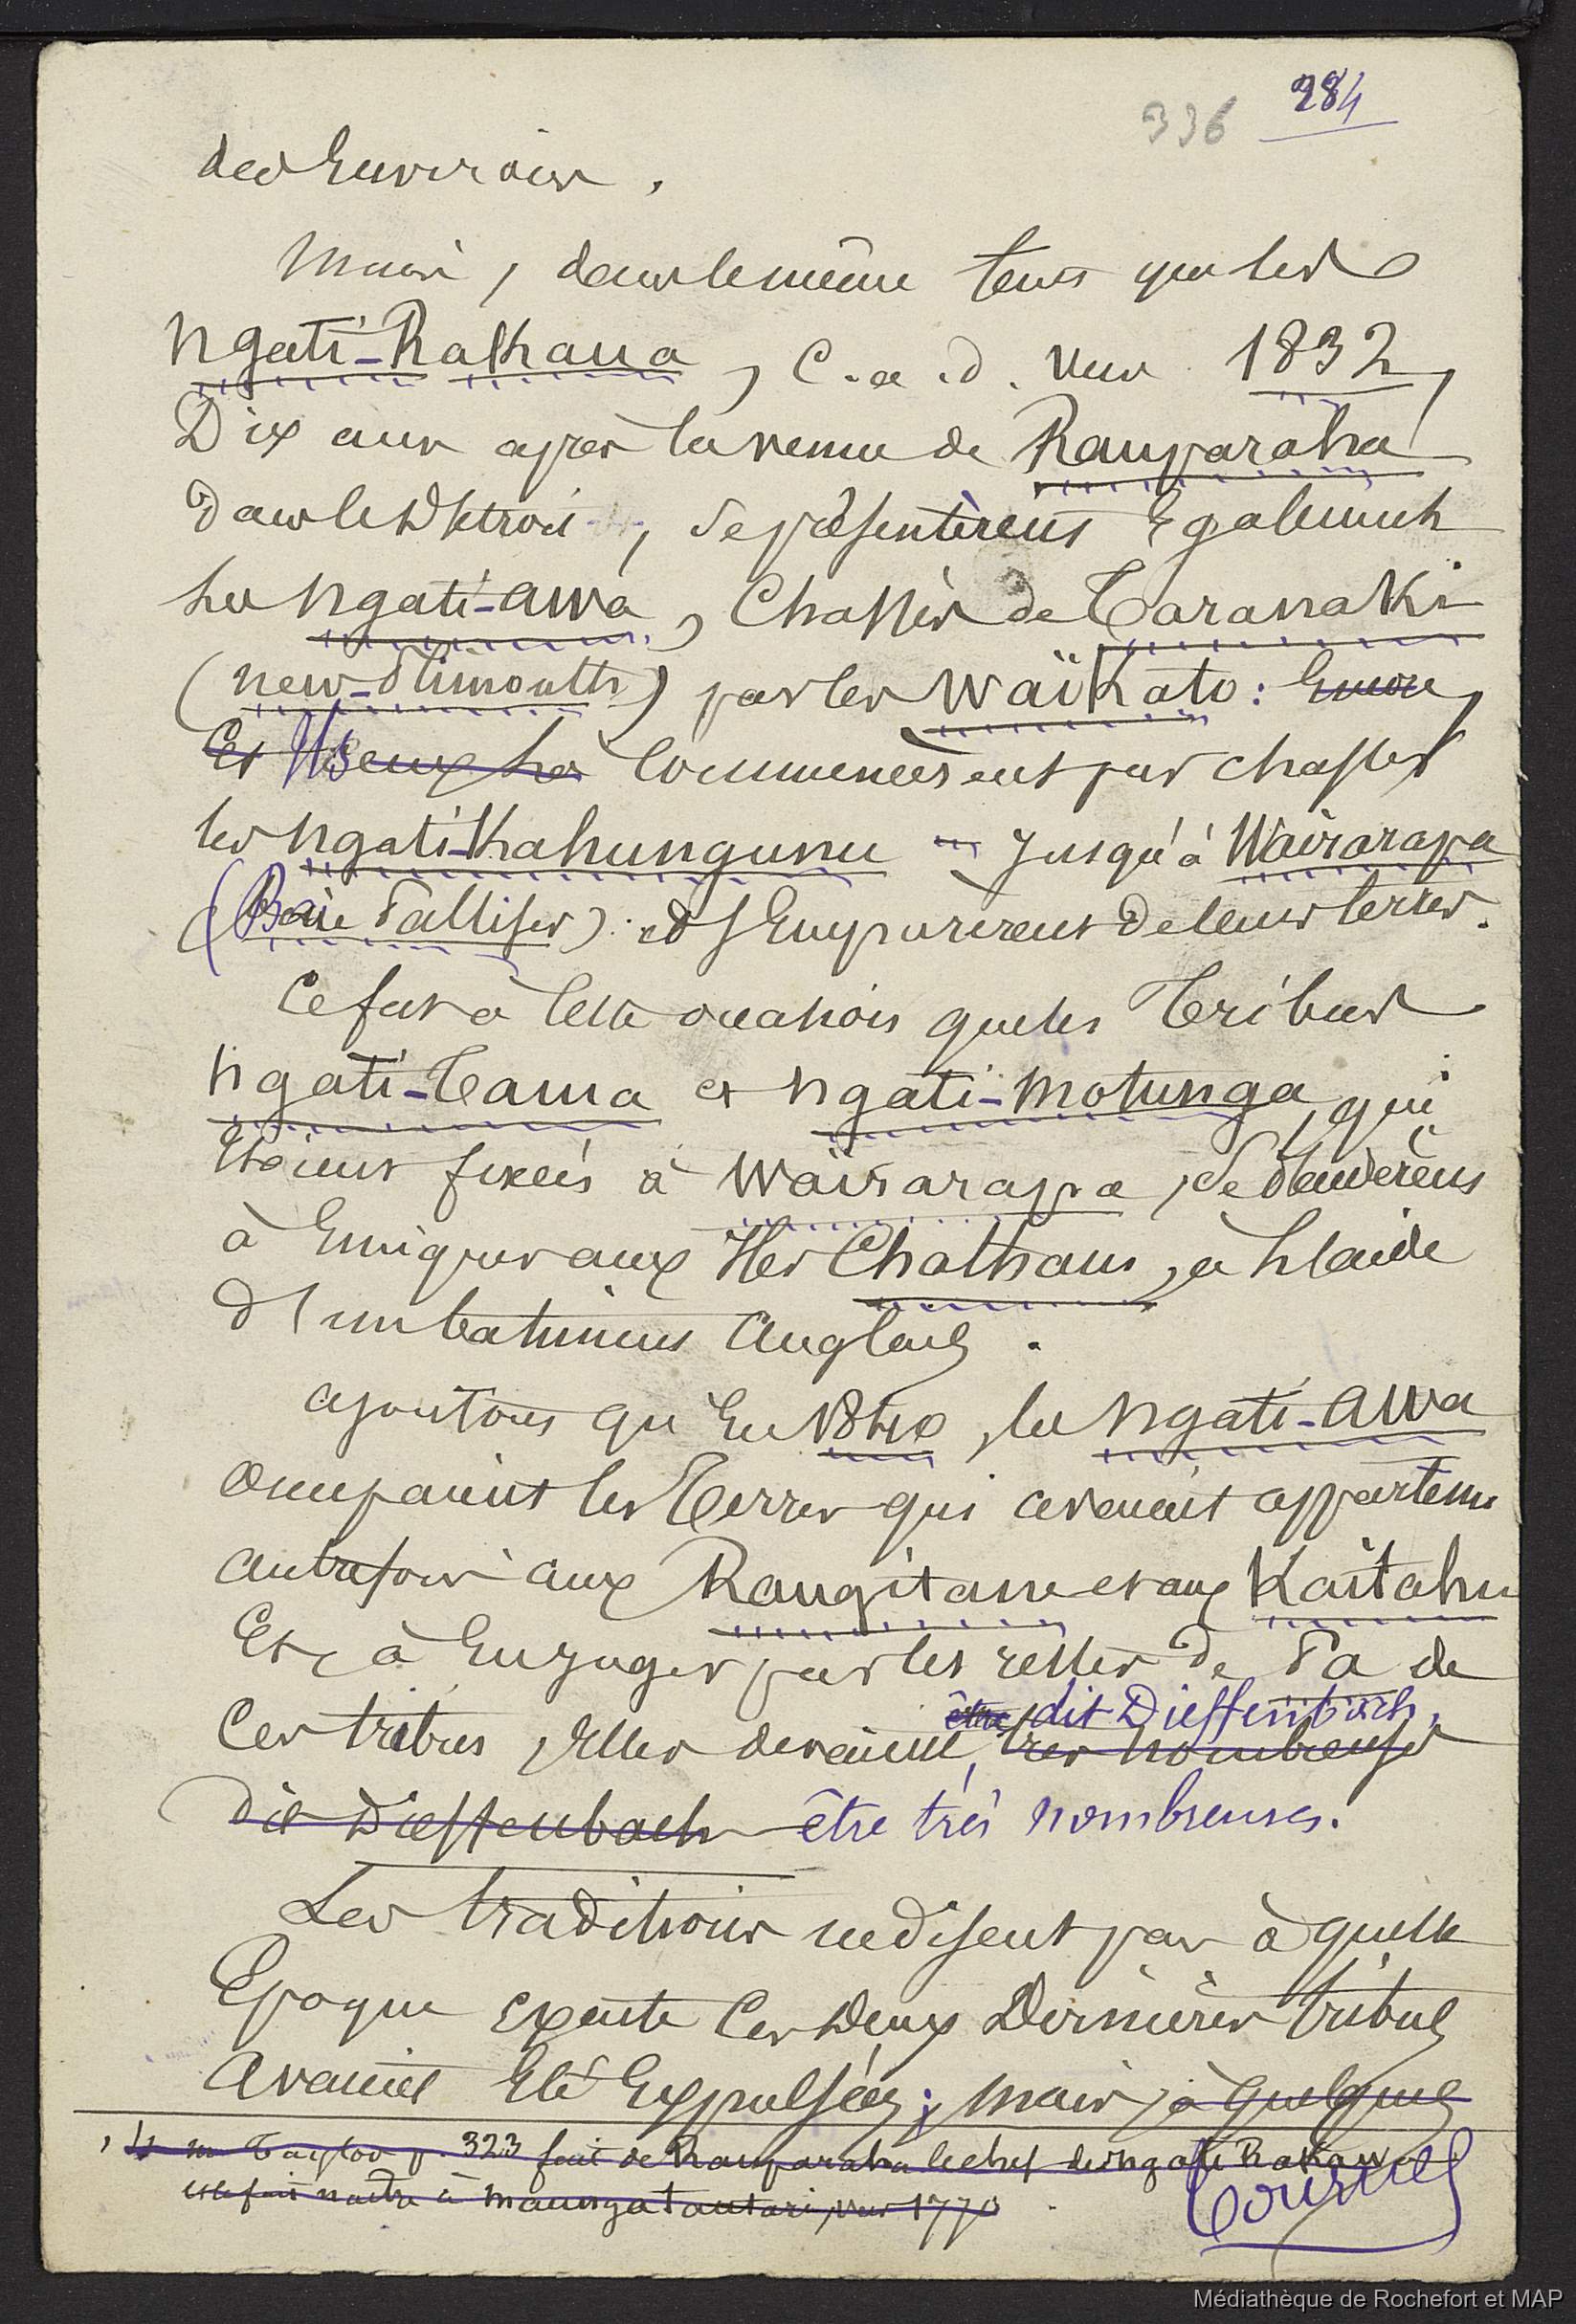 336 284
des Environs.
Mais, dans le même tems que les
Ngati-Rakhaua, C.a.d. vers 1832,
Dix ans après la venue de Rauparaha
dans le Détroit, se présentèrent Egalement
les Ngati-awa, Chassés de Taranaki
(new-Plimouth) par les Waïkato : Encore,
Et Ils eux les commencèrent par chasser
les Ngati-Kahungunu jusqu'à Wairarapa
(Baie Palliser) et s'Emparèrent de leurs terres.
Ce fut à cette occasion que les Tribus
Ngati-Tama et Ngati-motunga, qui
Etaient fixées à Waïrarapa, se déciderent
à Emigrer aux Iles Chatham, à l'aide
d'un batiment Anglais.
ajoutons qu'En 1840, les Ngati-awa
occupaient les Terres qui avaient appartenu
autrefois aux Rangitane et aux Kaitahu
Et, à En juger par les restes de Pa de
être dit Dieffenbach,
Ces tribus, Elles devaient, très nombreuses
dit Dieffenbach être très nombreuses.
Les traditions ne disent pas à quelle
Epoque exacte Ces Deux Dernières tribus
avaient Eté Expulsées ; mais, à quelques
M Taylor p. 323 fait de Rauparaha le chef des ngati Rakawa
et le fait naitre à maungatautari, vers 1770
Tournez
Médiathèque de Rochefort et MAP